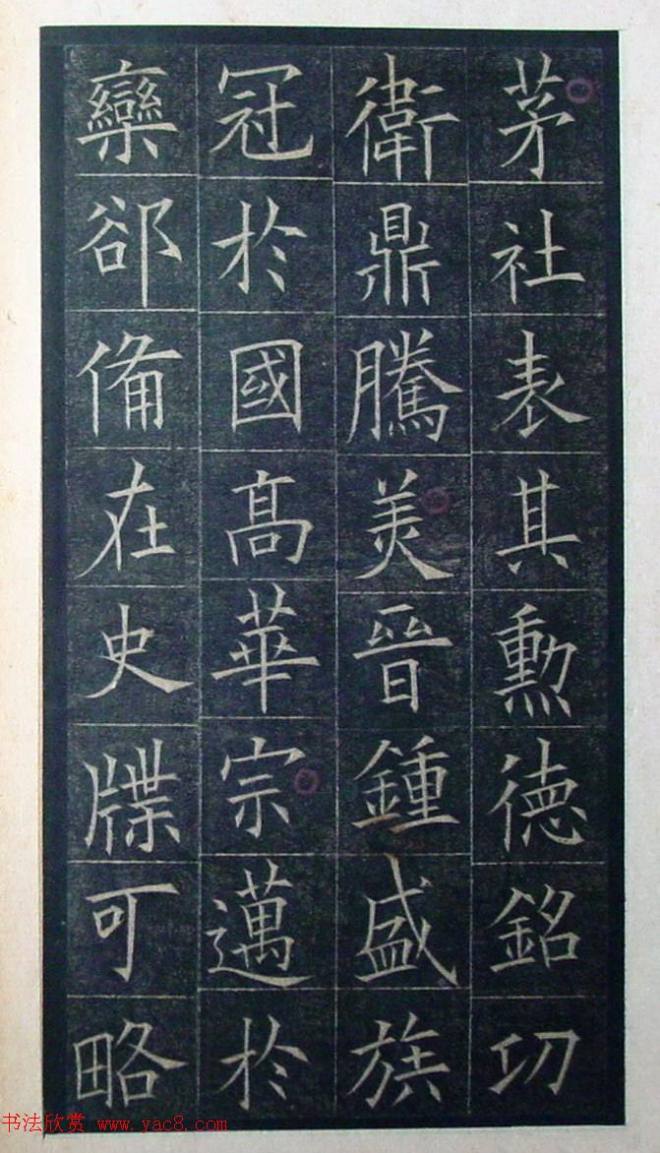 茅社表其勳德銘功
衛鼎騰美晉鍾盛族
冠於國高華宗邁於
欒郤備在史牒可略
书法欣赏 www.yac8.com